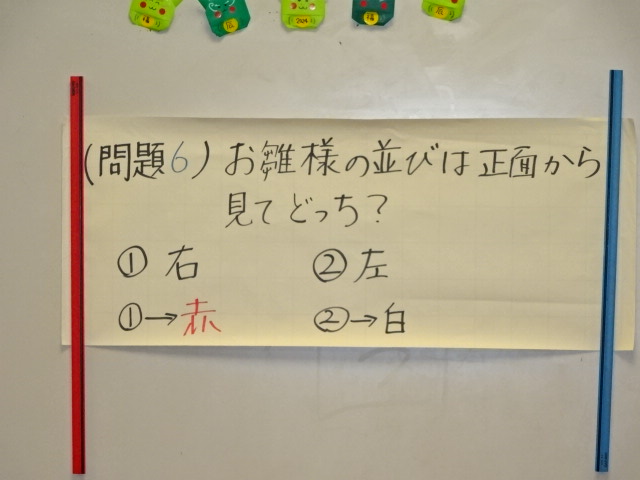 (問題6) お雛様の並びは正面から
見てどっち?
① 右 ② 左
①→赤 ②→白